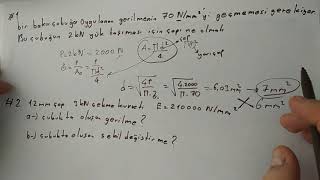 #1
bir bakır çubuğa uygulanan gerilmenin 70 N/mm²'yi geçmemesi gerekiyor
Bu çubuğun 2kN yük taşıması için çapı ne olmalı
P=2kN=2000 N
A=πd²/4
çap
yarıçap
d=√4P/π.σ =√4.2000/π.70 =6,03mm → 7mm
6mm
#2 12mm çap 3kN çekme kuvveti E=210000 N/mm²
a-) çubukta oluşan gerilme?
b-) çubukta oluşan şekil değiştirme?